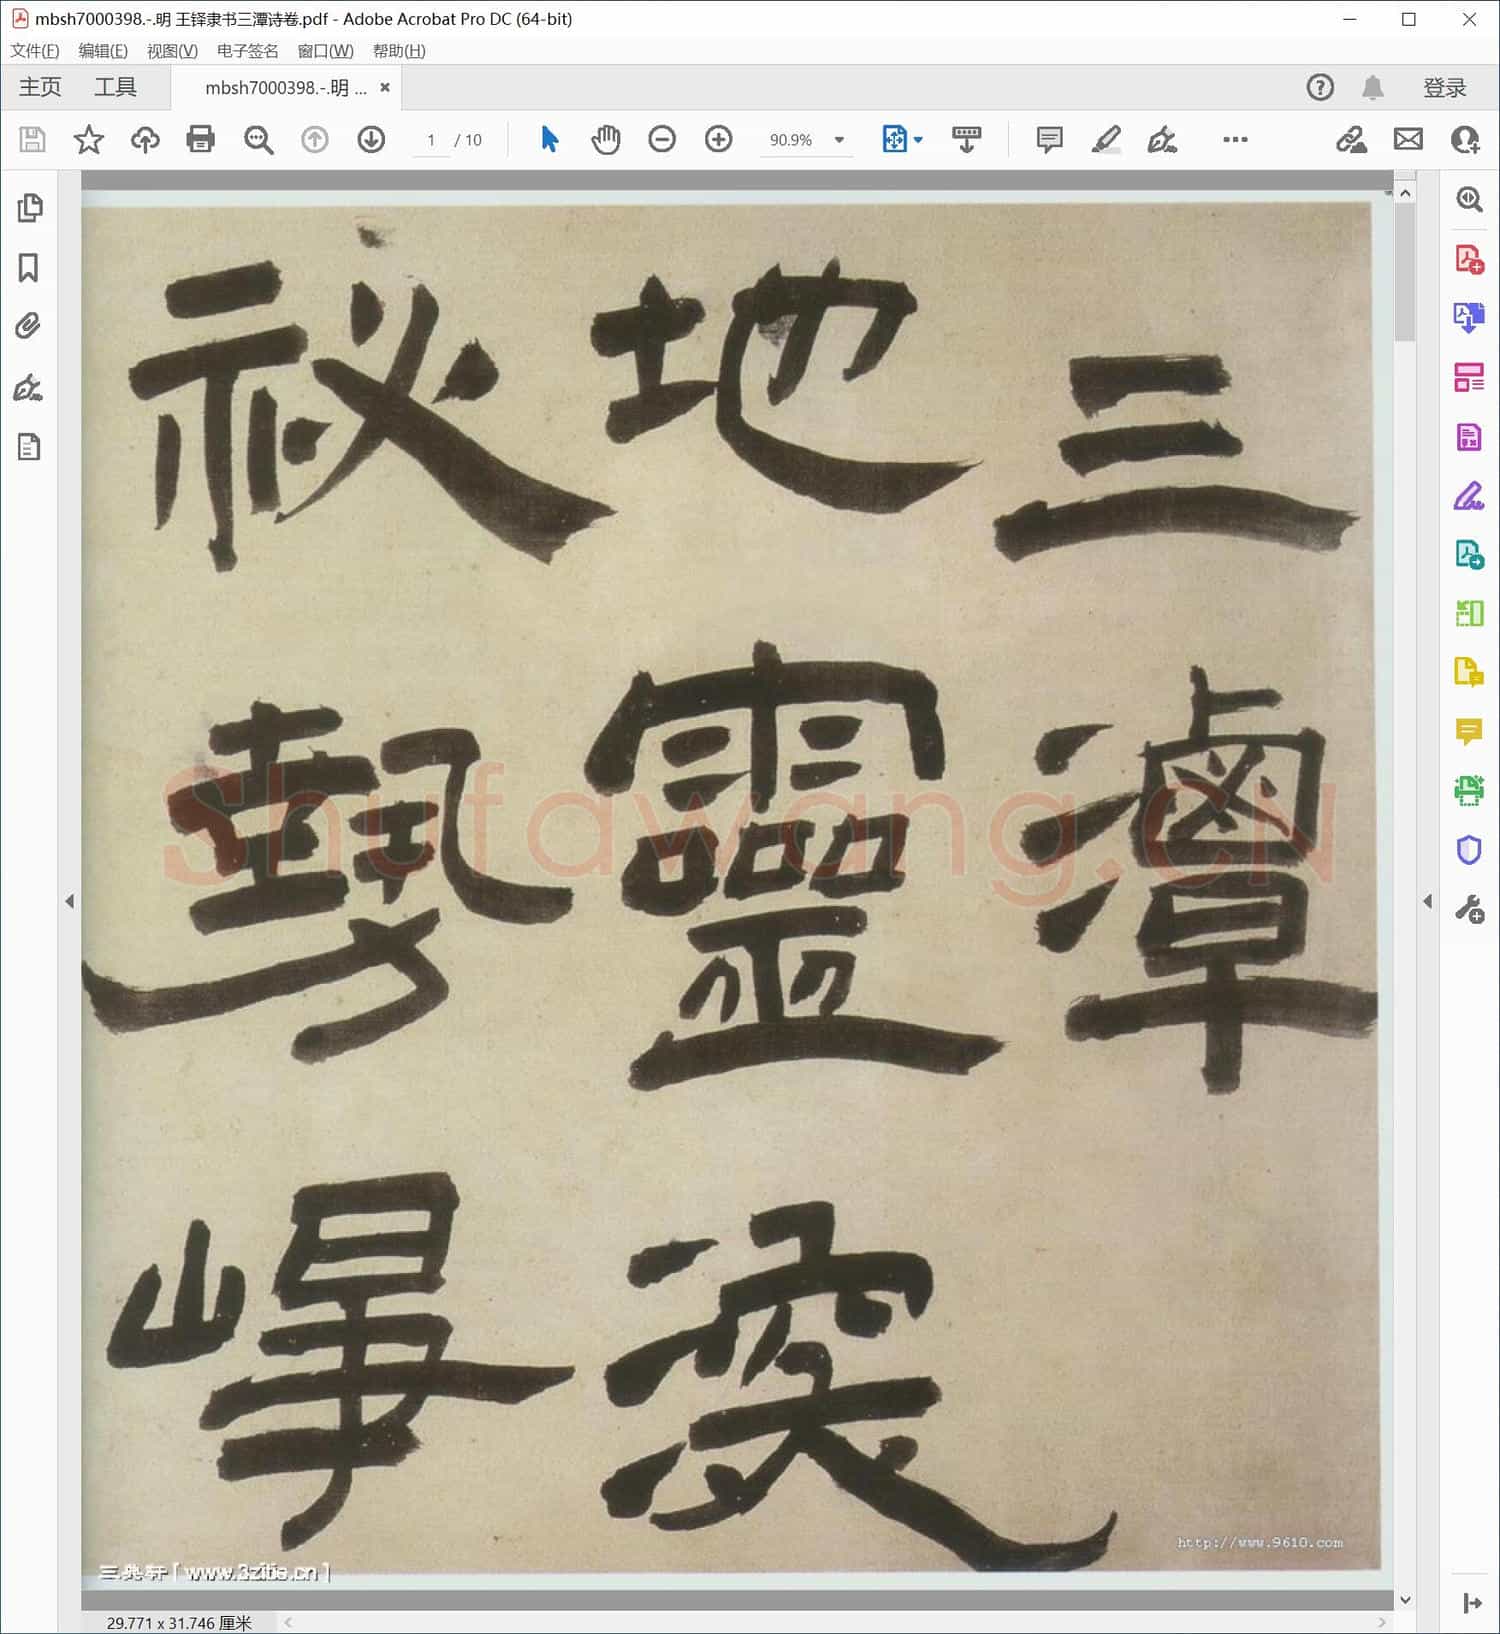 mbsh7000398.-.明 王铎隶书三潭诗卷.pdf - Adobe Acrobat Pro DC (64-bit)
文件(F) 编辑(E) 视图(V) 电子签名 窗口(W) 帮助(H)
主页 工具 mbsh7000398.-.明 ... 登录
1 / 10 90.9%
三潭
地靈
祕勢
Shufawang.CN
http://www.9610.com
www.3zitie.cn
29.771 x 31.746 厘米